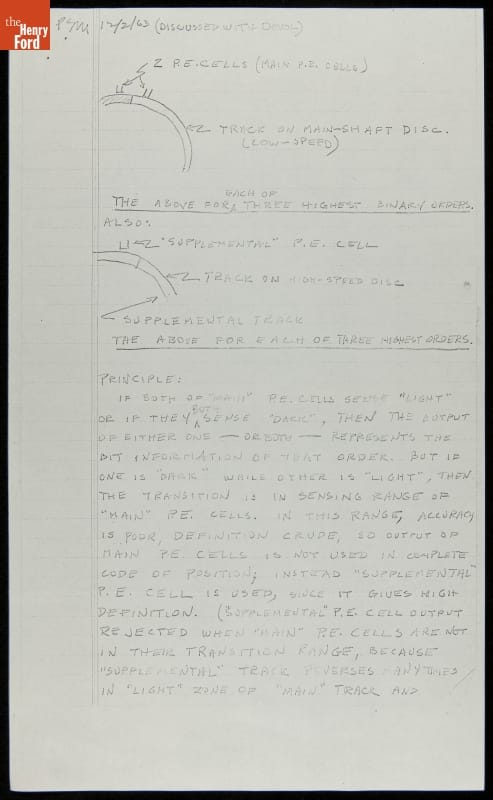 the
Henry
Ford
PSM 12/2/63 (DISCUSSED WITH DEVOL)
2 P.E. CELLS (MAIN P.E. CELLS)
TRACK ON MAIN-SHAFT DISC.
(LOW-SPEED)
EACH OF
THE ABOVE FOR THREE HIGHEST BINARY ORDERS.
ALSO:
"SUPPLEMENTAL" P.E. CELL
TRACK ON HIGH-SPEED DISC
SUPPLEMENTAL TRACK
THE ABOVE FOR EACH OF THREE HIGHEST ORDERS.
PRINCIPLE:
IF BOTH OF "MAIN" P.E. CELLS SENSE "LIGHT"
BOTH
OR IF THEY SENSE "DARK", THEN THE OUTPUT
OF EITHER ONE — OR BOTH — REPRESENTS THE
BIT INFORMATION OF THAT ORDER. BUT IF
ONE IS "DARK" WHILE OTHER IS "LIGHT", THEN
THE TRANSITION IS IN SENSING RANGE OF
"MAIN" P.E. CELLS. IN THIS RANGE, ACCURACY
IS POOR, DEFINITION CRUDE, SO OUTPUT OF
MAIN P.E. CELLS IS NOT USED IN COMPLETE
CODE OF POSITION; INSTEAD "SUPPLEMENTAL"
P.E. CELL IS USED, SINCE IT GIVES HIGH
DEFINITION. ("SUPPLEMENTAL" P.E. CELL OUTPUT
REJECTED WHEN "MAIN" P.E. CELLS ARE NOT
IN THEIR TRANSITION RANGE, BECAUSE
"SUPPLEMENTAL" TRACK REVERSES MANY TIMES
IN "LIGHT" ZONE OF "MAIN" TRACK AND